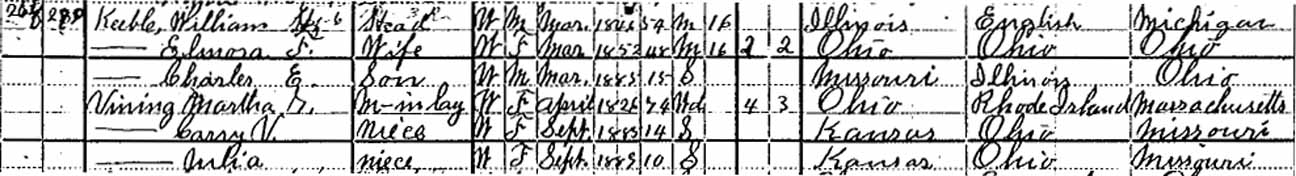 Keeble, William Head W M Mar. 1846 54 M 16 Illinois English Michigan
— Elnora F. Wife W F Mar 1852 48 M 16 2 2 Ohio Ohio Ohio
— Charles E. Son W M Mar. 1885 15 S Missouri Illinois Ohio
Vining Martha G. M-in lay W F April 1826 74 Wd 4 3 Ohio Rhode Island Massachusetts
— Carry V. niece W F Sept. 1885 14 S Kansas Ohio Missouri
— Julia niece W F Sept. 1889 10 S Kansas Ohio Missouri